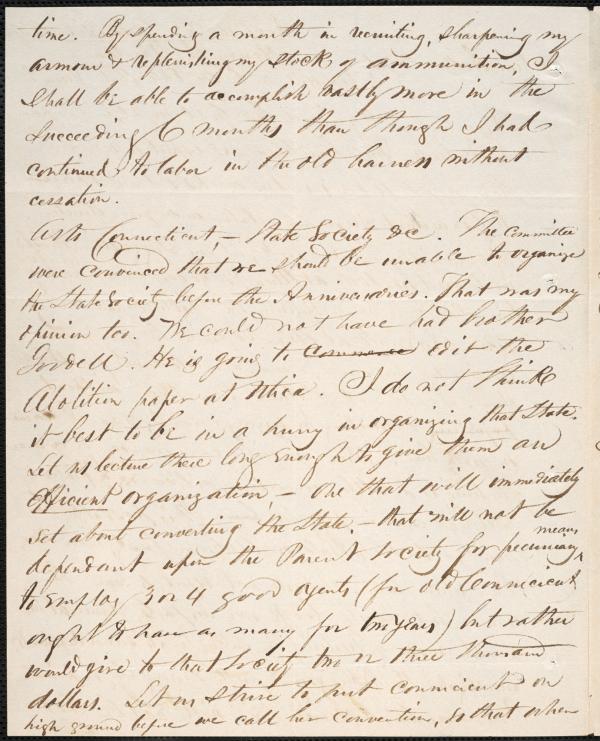 time. By spending a month in recruiting, sharpening my
armour & replenishing my stock of ammunition, I
shall be able to accomplish vastly more in the
succeeding 6 months than though I had
continued to labor in the old harness without
cessation.
As to Connecticut, – State Society &c. The Committee
were convinced that we should be unable to organize
the State Society before the Anniversaries. That was my
opinion too. We could not have had brother
He is going to Commence edit the
Abolition paper at Utica. I do not think
it best to be in a hurry in organizing that State.
Let us lecture there long enough to give them an
efficient organization, – one that will immediately
set about converting the State, – that will not be
dependant upon the Parent Society for pecuniary means
to employ 3 or 4 good agents (for old Connecticut
ought to have as many for two years) but rather
would give to that Society two or three thousand
dollars. Let us strive to put Connecticut on
high ground before we call her convention, so that when